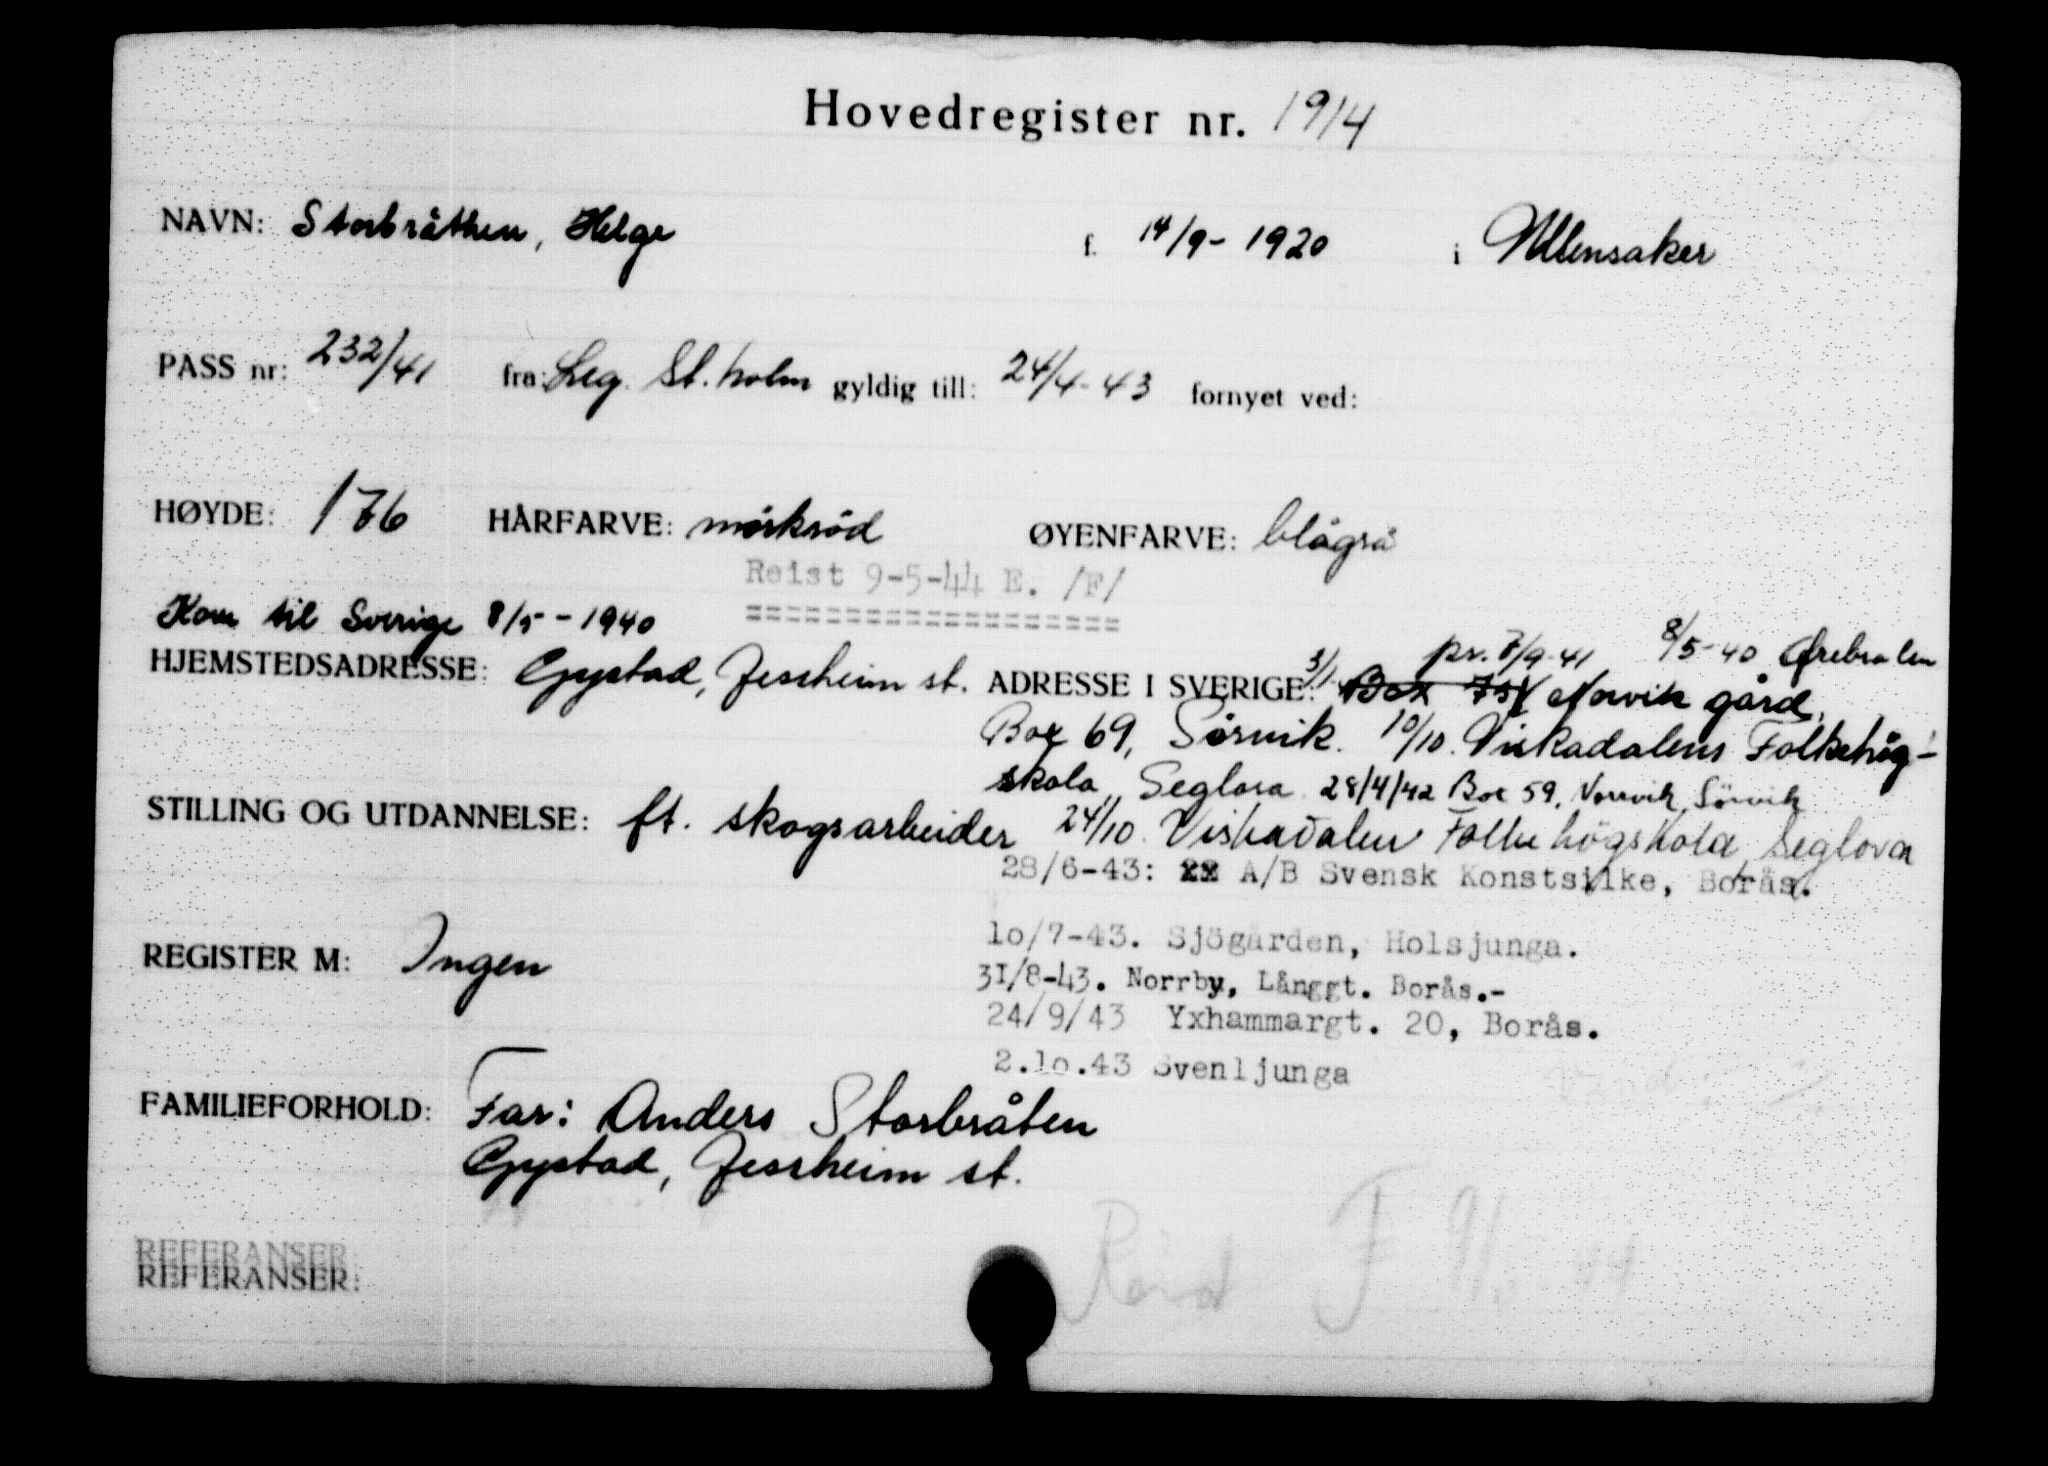 Hovedregister nr. 1914
NAVN: Storbråthen, Helge f. 14/9- 1920 i Ullensaker
PASS nr: 232/41 fra: Leg. St.holm gyldig till: 24/4-43 fornyet ved:
HØYDE: 176 HÅRFARVE: mörkröd ØYENFARVE: blågrå
Reist 9-5-44 E. /F/
==================
Kom til Sverige 8/5-1940
pr. 8/9-41 8/5-40 Örebro len
HJEMSTEDSADRESSE: Gystad, Jessheim st. ADRESSE I SVERIGE: 3/1 Box 751 Norvik gård,
Box 69, Sörvik. 10/10. Viskadalens Folkehög-
skola, Seglora 28/4/42 Box 59, Norrvik, Sörvik
STILLING OG UTDANNELSE: ft. skogsarbeider 24/10. Viskadalen Folkehögskola, Seglora
28/6-43: xx A/B Svensk Konstsilke, Borås.
lo/7-43. Sjögården, Holsjunga.
REGISTER M: Ingen
31/8-43. Norrby, Långgt. Borås.-
24/9/43 Yxhammargt. 20, Borås.
2.lo.43 Svenljunga
FAMILIEFORHOLD: Far: Anders Storbråten
Gystad, Jessheim st.
REFERANSER:
REFERANSER:
Reist F 9/5 44